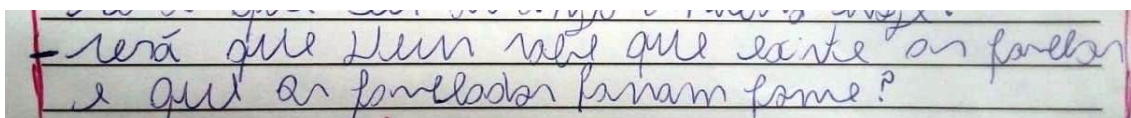 - será que Deus sabe que existe as favelas
e que os favelados passam fome?